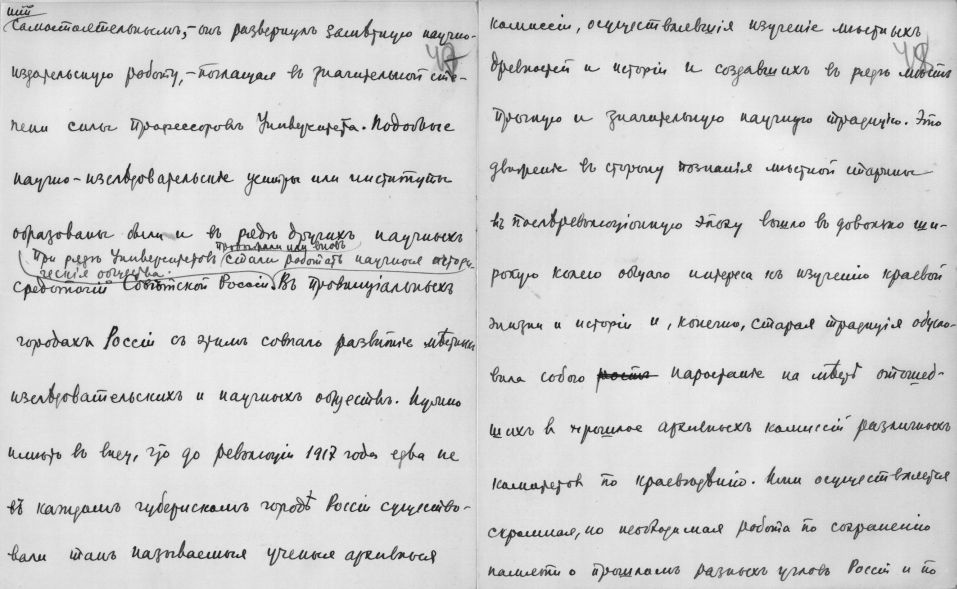 самостоятельнымъ, — онъ развернулъ замѣтную научно-
47
издательскую работу, — поглощая въ значительной сте-
пени силы профессоровъ Университета. Подобные
научно-изслѣдовательскіе центры или институты
образованы были и въ рядѣ другихъ научныхъ
При рядѣ Университетовъ стали работать научныя истори-
ческія общества.
средоточій Совѣтской Россіи. Въ провинціальныхъ
городахъ Россіи съ этимъ совпало развитіе мѣстныхъ
изслѣдовательскихъ и научныхъ обществъ. Нужно
имѣть въ виду, что до революціи 1917 года едва не
въ каждомъ губернскомъ городѣ Россіи существо-
вали такъ называемыя ученыя архивныя
комиссіи, осуществлявшія изученіе мѣстныхъ
48
древностей и исторіи и создавшихъ въ рядѣ мѣстъ
прочную и значительную научную традицію. Это
движеніе въ сторону познанія мѣстной старины
въ послѣреволюціонную эпоху вошло въ довольно ши-
рокую колею общаго интереса къ изученію краевой
жизни и исторіи и, конечно, старая традиція обусло-
вила собою ростъ нарастаніе на мѣстѣ отошед-
шихъ в прошлое архивныхъ комиссій различныхъ
комитетов по краевѣдѣнію. Ими осуществляется
скромная, но необходимая работа по сохраненію
памяти о прошломъ разныхъ угловъ Россіи и по